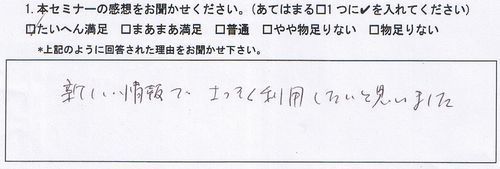 1. 本セミナーの感想をお聞かせください。(あてはまる□1つに✔を入れてください)
□たいへん満足 □まあまあ満足 □普通 □やや物足りない □物足りない
*上記のように回答された理由をお聞かせ下さい。
新しい情報で さっそく利用したいと思いました